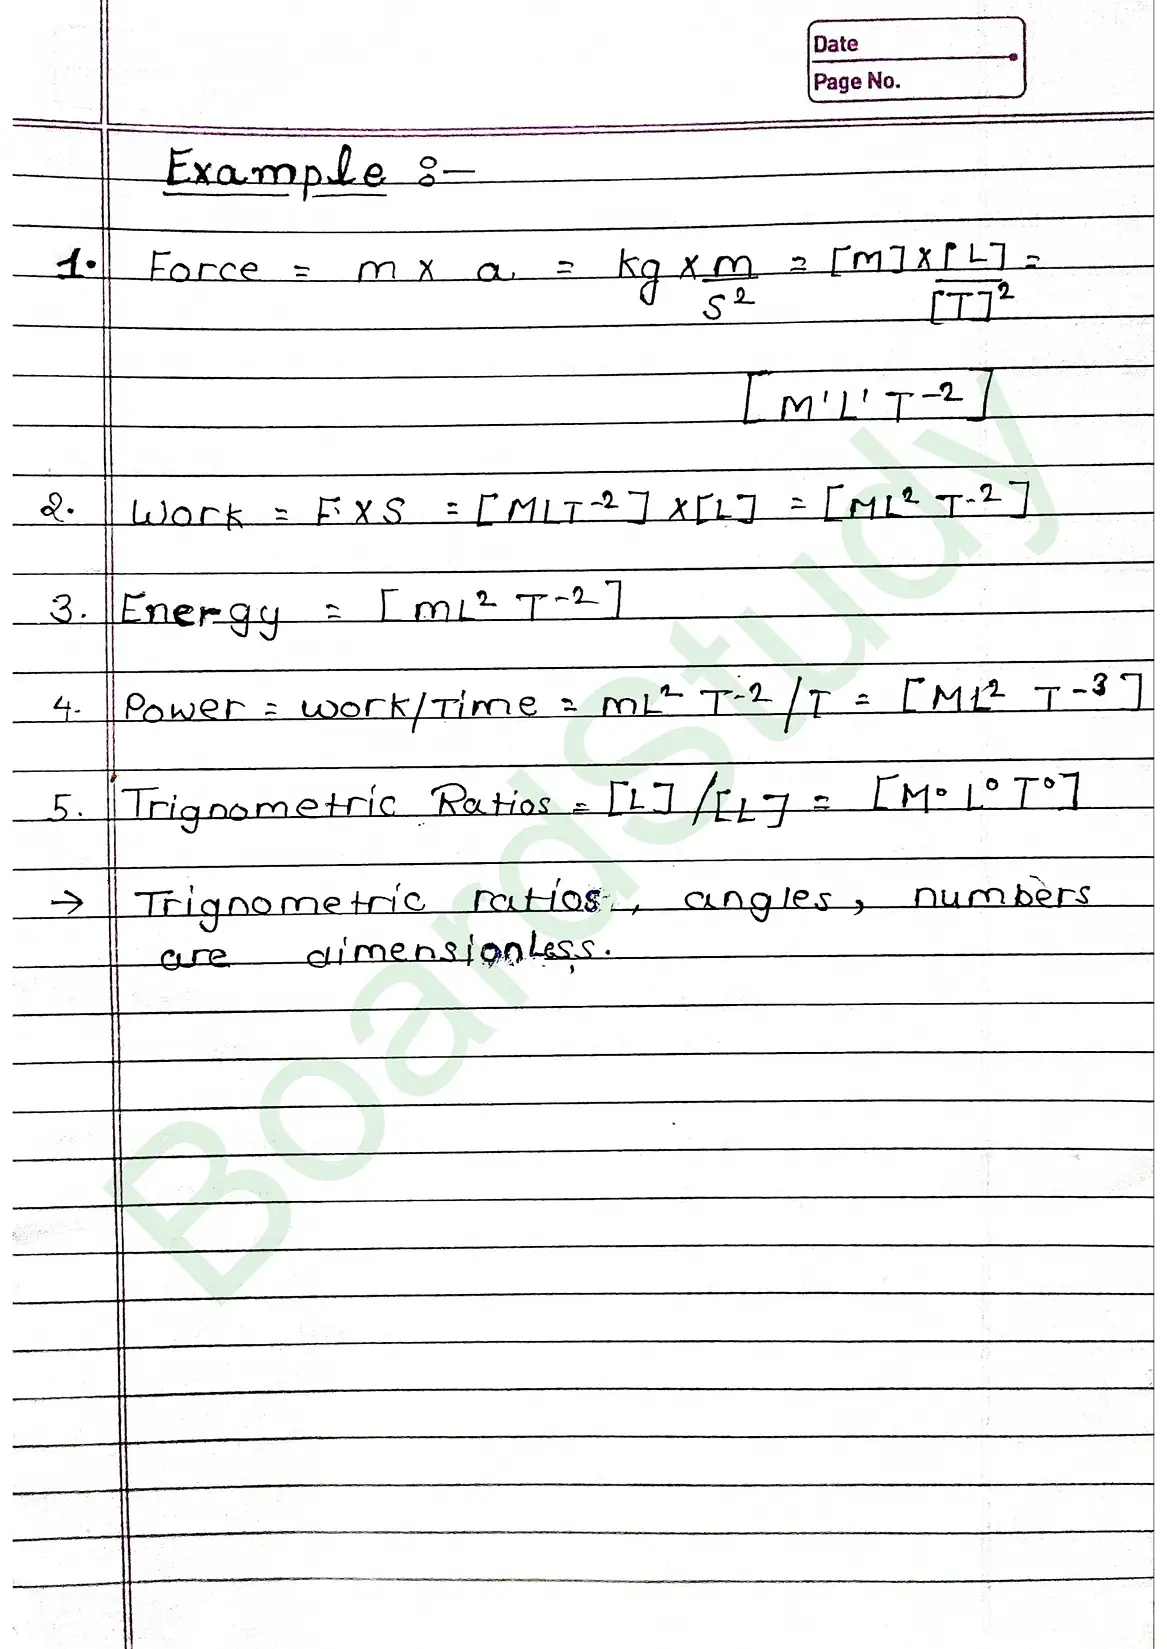 Date
Page No.
Example :-
1. Force = m x a = kg x m/s² = [M] x [L]/[T]² =
[M¹L¹T⁻²]
2. Work = F x S = [MLT⁻²] x [L] = [ML² T⁻²]
3. Energy = [ML² T⁻²]
4. Power = work/Time = ML² T⁻²/T = [ML² T⁻³]
5. Trignometric Ratios = [L]/[L] = [M⁰ L⁰ T⁰]
→ Trignometric ratios, angles, numbers
are dimensionless.
BoardStudy